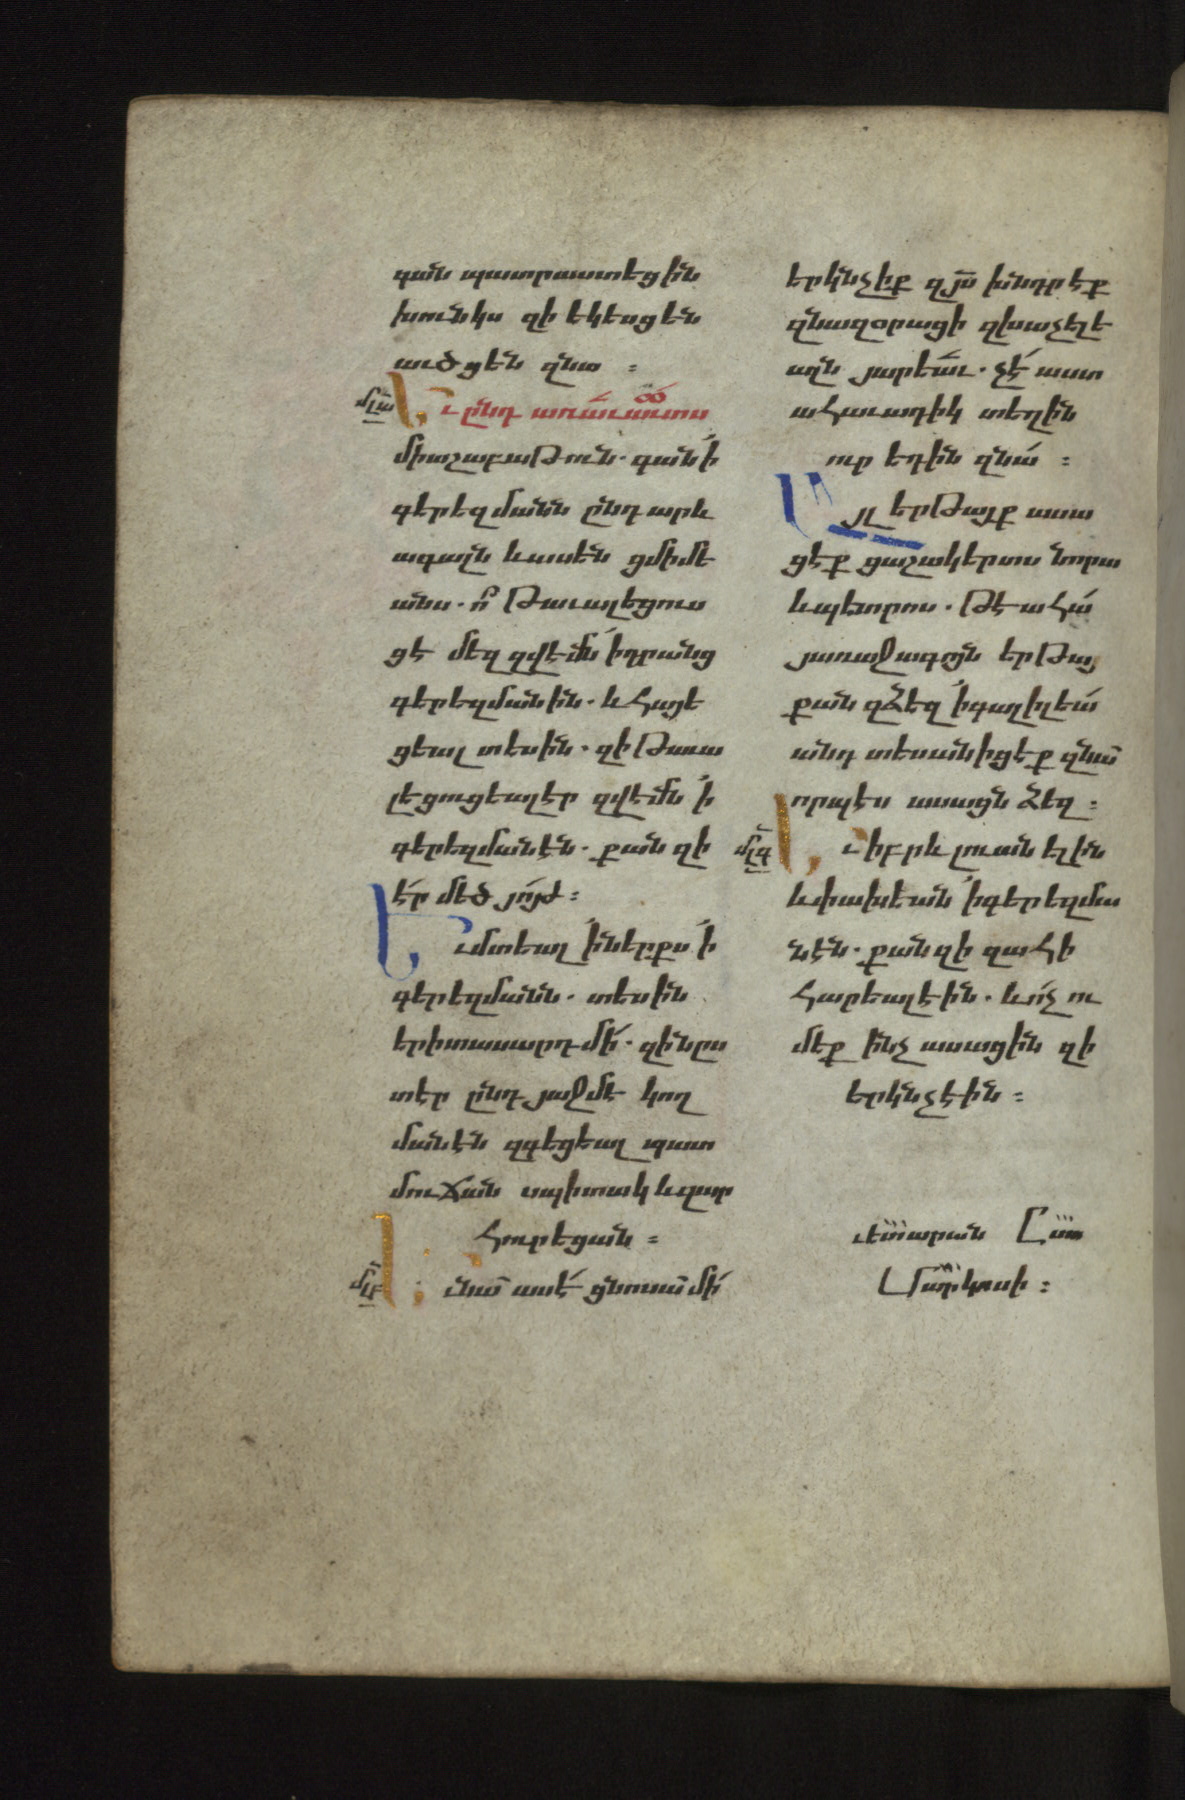 գան պատրաստեցին
խունկս զի եկեսցեն
աւծցեն զնա ։
մլա Եւ ընդ առաւաւտս
միաշաբաթուն. գան ՚ի
գերեզմանն ընդ արև
ագալն և ասեն ցմիմե
անս. ո՞ թաւալեցուս
ցէ մեզ զվէմն ՚ի դրանց
գերեզմանին. և հայե
ցեալ տեսին. զի թաւա
լեցուցեալ էր զվեմն ՚ի
գերեզմանէն. քանզի
էր մեծ յոյժ ։
Եւ մտեալ ՚ի ներքս ՚ի
գերեզմանն. տեսին
երիտասարդ մի. զի նըս
տէր ընդ յաջմէ կող
մանէն զգեցեալ պատ
մուճան սպիտակ և զար
հուրեցան ։
մլբ Եւ նա ասէ ցնոսա մի
երկնչիք զյս խնդրէք
զնազօրացի զխաչելե
ալն յարեաւ. չէ աստ
ահաւադիկ տեղին
ուր եդին զնա ։
Այլ երթայք ասա
ցէք ցաշակերտս նորա
և պետրոս. թէ ահա
յառաջագոյն երթայ
քան զձեզ ՚ի գալիլեա
անդ տեսանիցեք զնա
որպէս ասացն ձեզ ։
մլգ Եւ իբրև լուան ելին
և փախեան ՚ի գերեզմա
նէն. քանզի զահի
հարեալ էին. և ոչ ու
մեք ինչ ասացին զի
երկնչէին ։
ւետարան Ըստ
Մարկոսի ։